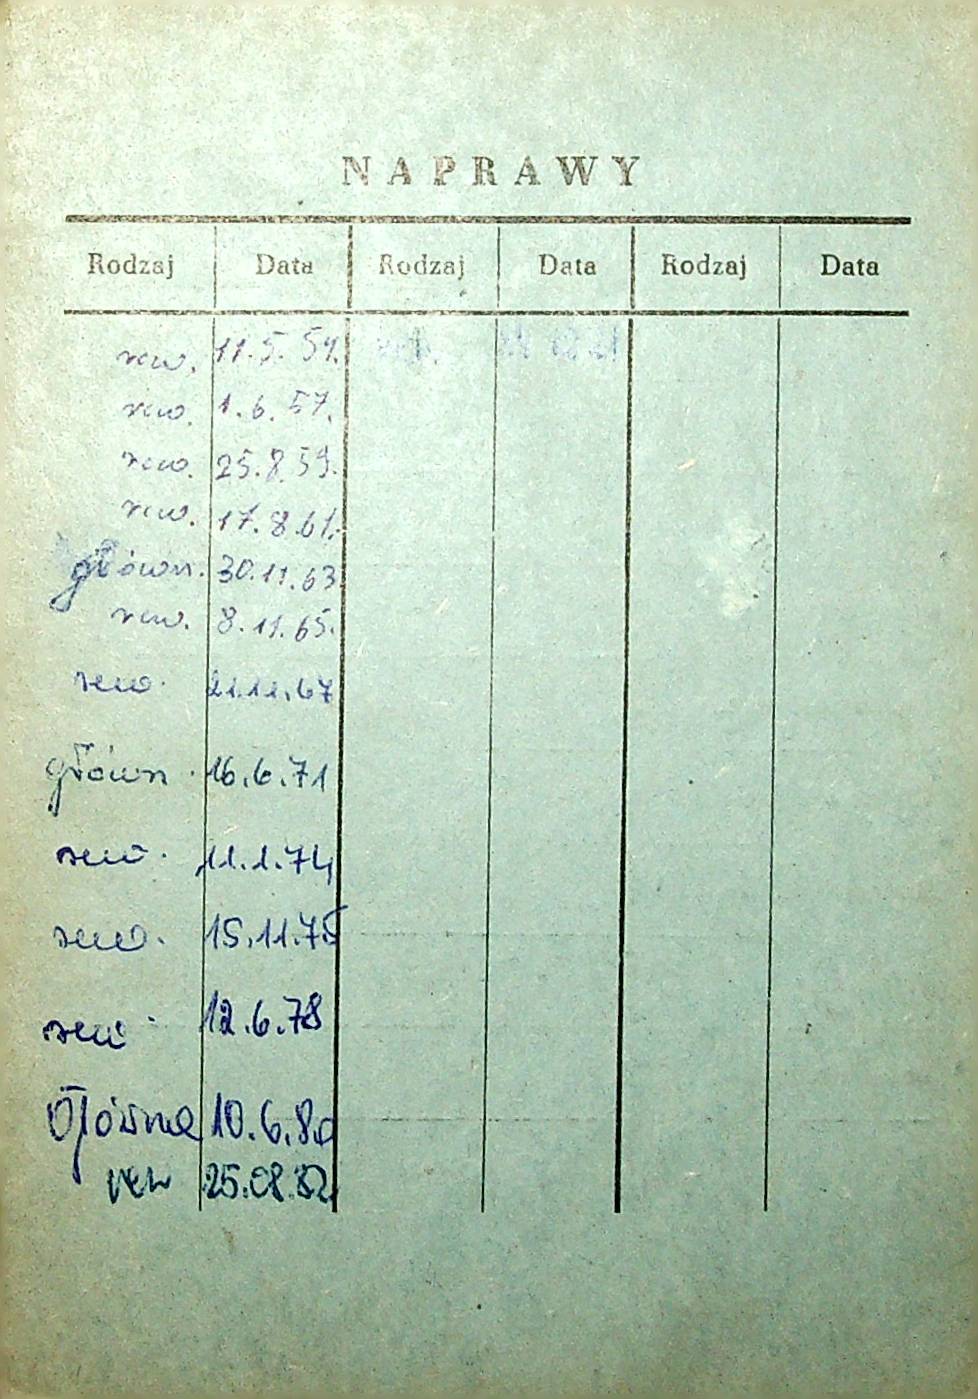 NAPRAWY
Rodzaj Data Rodzaj Data Rodzaj Data
rew. 11.5.54.
rew. 1.6.57.
rew. 25.8.59.
rew. 17.8.61.
główn. 30.11.63
rew. 8.11.65.
rew. 21.11.67
główn. 16.6.71
rew. 11.1.74
rew. 15.11.75
rew. 12.6.78
Główna 10.6.80
rew 25.08.82